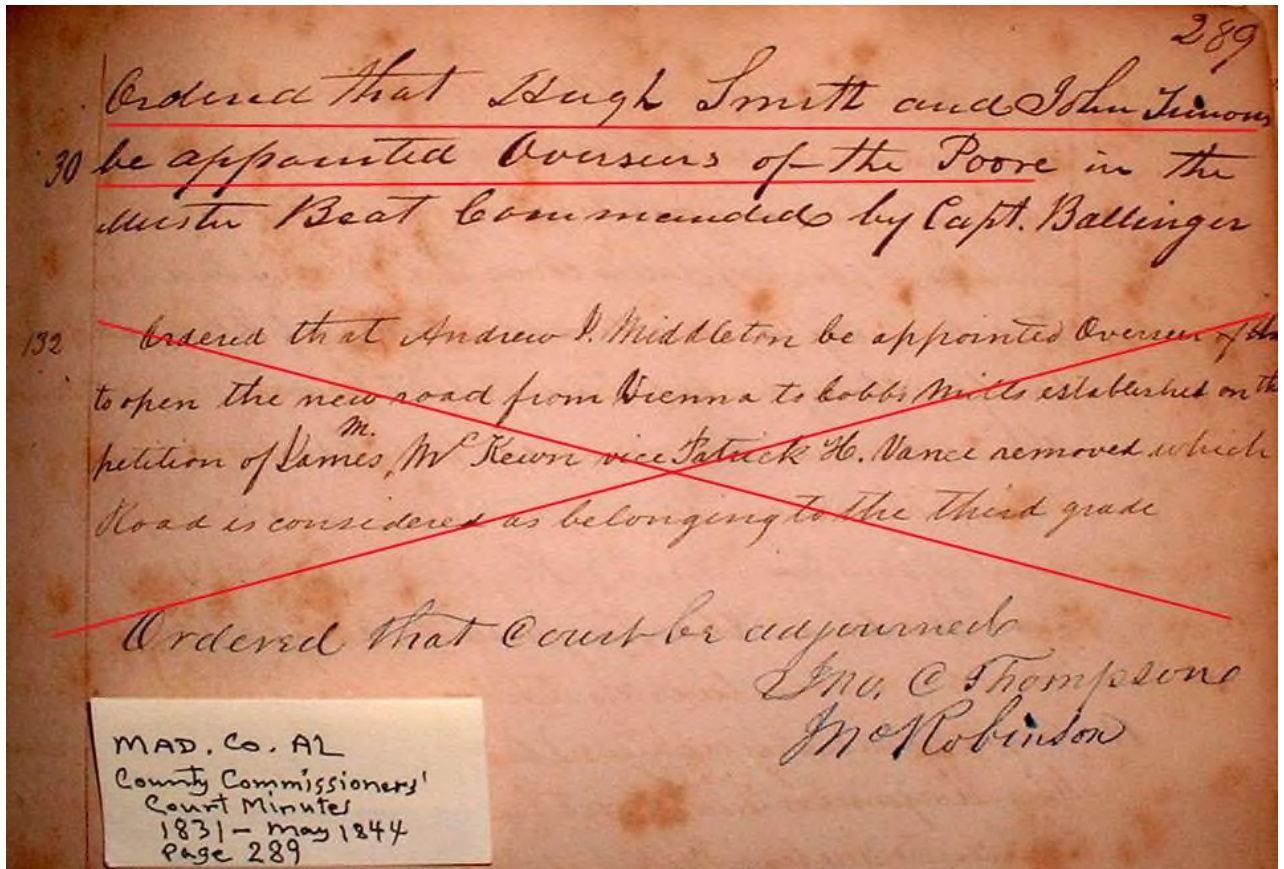 289
Ordered that Hugh Smith and John Timons
30 be appointed Overseers of the Poore in the
Muster Beat Commanded by Capt. Ballinger
132 Ordered that Andrew J. Middleton be appointed Overseer of
to open the new road from Vienna to Cobbs Mills established on the
petition of James M. McKewn vice Patrick H. Vance removed which
Road is considered as belonging to the third grade
Ordered that Court be adjourned
Jno. C Thompson
Robinson
MAD. Co. AL
County Commissioners'
Court Minutes
1831 - May 1844
Page 289